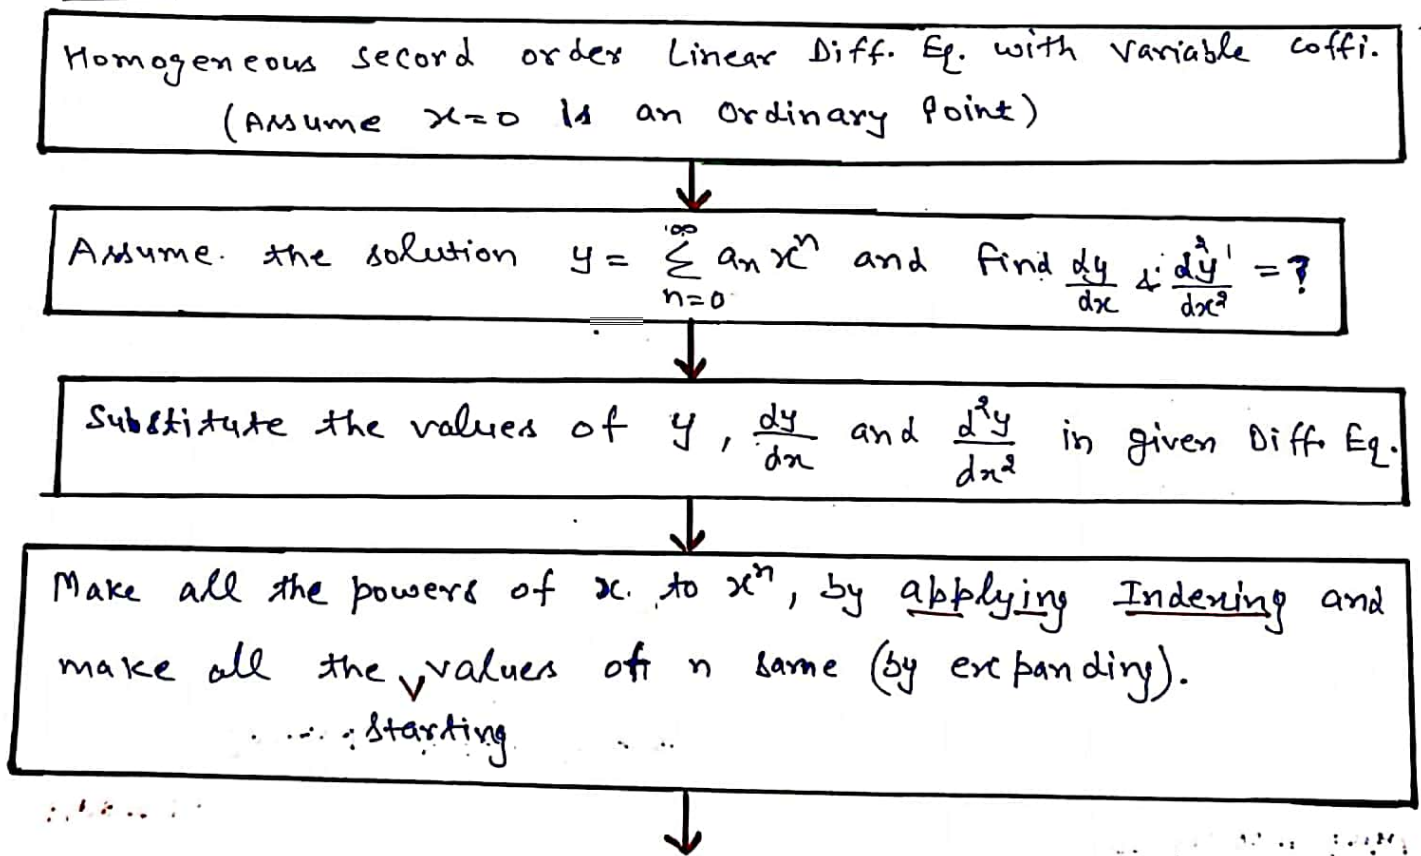 Homogeneous secord order Linear Diff. Eq. with variable coffi.
(Assume x=0 Is an ordinary Point)
Assume. the solution y = ∞Σn=0 aₙxⁿ and find dy/dx & d²y/dx² = ?
Substitute the values of y, dy/dx and d²y/dx² in given Diff. Eq.
Make all the powers of x. to xⁿ, by applying Indexing and
make all the values of n same (by expanding).
starting